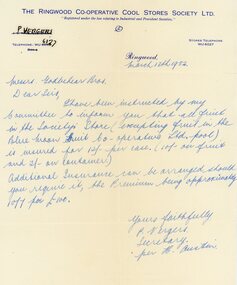 THE RINGWOOD CO-OPERATIVE COOL STORES SOCIETY LTD.
"Registered under the law relating to Industrial and Provident Societies."
P. VERGERS
TELEPHONE, WU 6127
STORES TELEPHONE
WU 6027
Ringwood,
March 12th 1952.
Messrs. Godbehear Bros.
Dear Sirs,
I have been instructed by my
Committee to inform you that all fruit
in the Society's Store (excepting fruit in the
Blue Moon Fruit Co-operative Ltd. pool)
is insured for 13/- per case. (10/- on fruit
and 3/- on container)
Additional Insurance can be arranged should
you require it, the Premium being approximately
for £100.
Yours faithfully
P. Vergers
Secretary.
per H. Austin